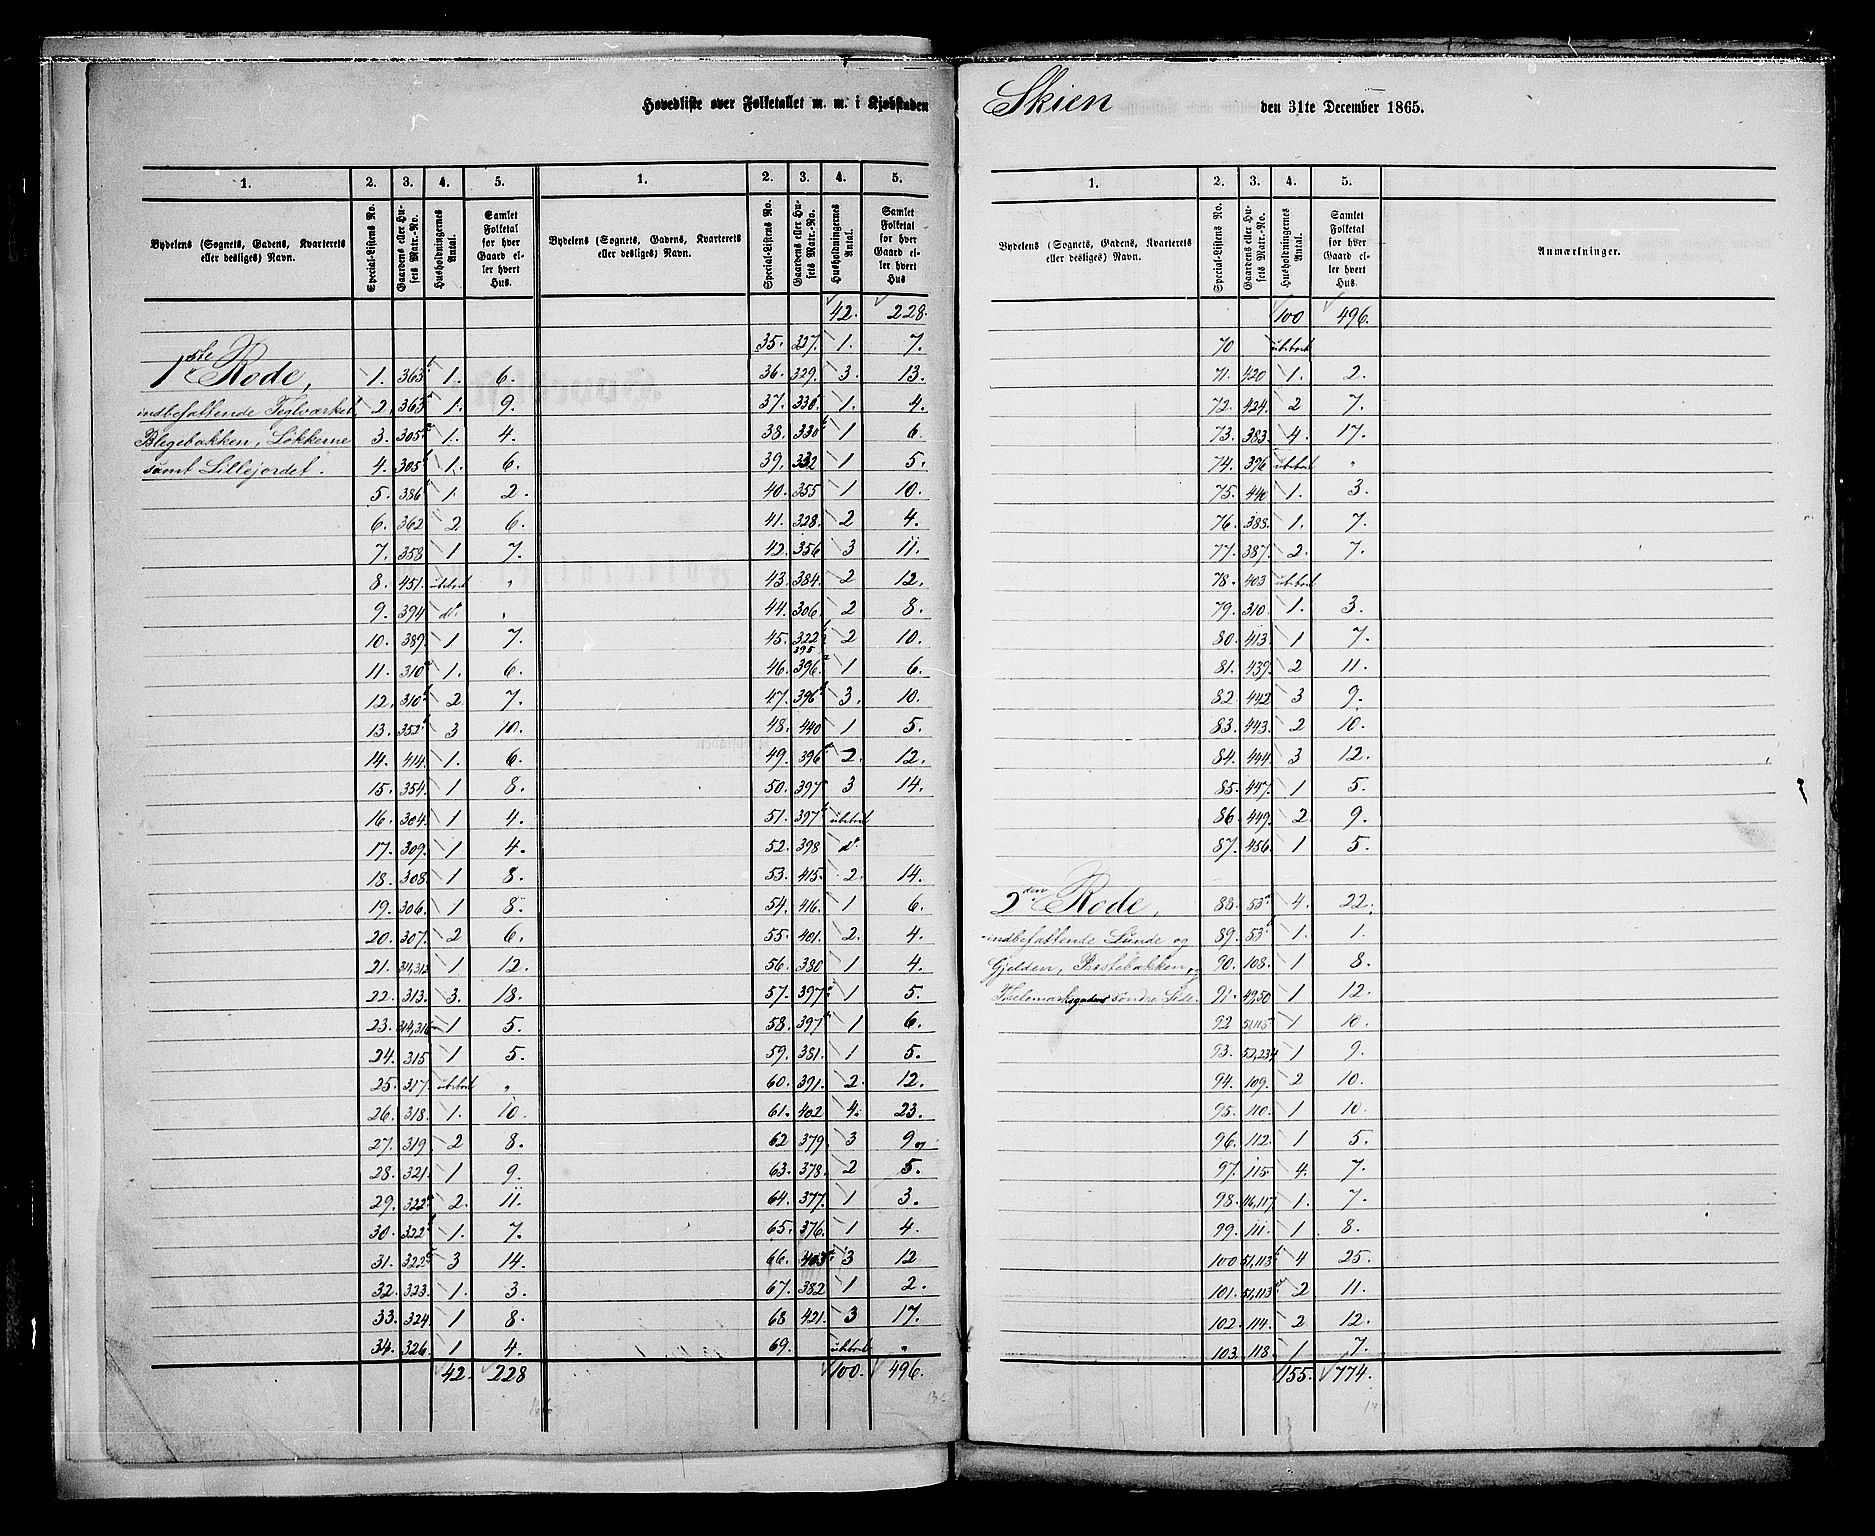 Hovedliste over Folketallet m. m. i Kjøbstaden Skien den 31te December 1865.
1. 2. 3. 4. 5. 1. 2. 3. 4. 5.
Bydelens (Sognets, Gadens, Kvarterets eller desliges) Navn. Special-Listens No. Gaardens eller Husets Matr.-No. Husholdningernes Antal. Samlet Folketal for hver Gaard eller hvert Hus.
Bydelens (Sognets, Gadens, Kvarterets eller desliges) Navn. Special-Listens No. Gaardens eller Husets Matr.-No. Husholdningernes Antal. Samlet Folketal for hver Gaard eller hvert Hus
1ste Rode, 1. 363b 1. 6.
indbefattende Teglværket 2. 363a 1. 9.
Blegebakken, Løkkerne 3. 305a 1. 4.
samt Lillejordet. 4. 305b 1. 6.
5. 386 1. 2.
6. 362 2 6.
7. 358 1 7.
8. 451. ubeboet "
9. 394 do. "
10. 389. 1 7.
11. 310a 1. 6.
12. 310b 2 7.
13. 352. 3 10.
14. 414. 1. 6.
15. 354. 1 8.
16. 304. 1 4.
17. 309. 1 4.
18. 308. 1 8.
19. 306. 1 8.
20. 307. 2 6.
21. 311,312 1 12.
22. 313. 3. 18.
23. 314,316 1 5.
24. 315 1 5.
25. 317. ubeboet "
26. 318. 1. 10.
27. 319 2 8.
28. 321. 1 9.
29. 322a 2. 11.
30. 322b 1. 7.
31. 322c 3 14.
32. 323. 1. 3.
33. 324 1 8.
34. 326. 1 4.
42. 228
42. 228.
35. 327. 1. 7.
36. 329. 3. 13.
37. 330 1. 4.
38. 330b 1 6.
39. 332 1 5.
40. 355 1 10.
41. 328. 2 4.
42. 356 3 11.
43. 384. 2 12.
44. 306. 2 8.
45. 322 2 10.
395
46. 396. 1 6.
47. 396b 3. 10.
48. 440 1 5.
49. 396 2. 12.
50. 397 3 14.
51. 397b ubeboet
52. 398 do.
53. 415. 2. 14.
54. 416. 1 6.
55. 401. 2. 4.
56. 380 1 4.
57. 397 1 5.
58. 397 1 6.
59. 381. 1 5.
60. 391. 2. 12.
61. 402 4. 23.
62 379. 3 9
63. 378. 2 5.
64. 377. 1 3.
65. 376. 1 4.
66. 403a 3 12
67. 382 1 2.
68 421. 3 17.
69. ubeboet "
100. 496.
1. 2. 3. 4. 5.
Bydelens (Sognets, Gadens, Kvarterets eller desliges) Navn. Special-Listens No. Gaardens eller Husets Matr.-No. Husholdningernes Antal. Samlet Folketal for hver Gaard eller hvert Hus. Anmærkninger.
100 496.
70 ubeboet
71. 420 1. 2.
72. 424. 2 7.
73. 383. 4. 17.
74. 376 ubeboet "
75. 440 1. 3.
76. 388. 1. 7.
77. 387. 2. 7.
78. 403 ubeboet
79. 310. 1. 3.
80. 413. 1 7.
81. 439. 2 11.
82. 442 3 9.
83. 443. 2 10.
84. 444. 3 12.
85. 447. 1 5.
86. 449. 2 9.
87. 456. 1 5.
2den Rode, 88. 53a 4. 22.
indbefattende Lunde og 89. 53b 1. 1.
Gjelden, Præstebakken, og 90. 108. 1 8.
Thelemarksgadens søndre Side. 91. 49,50 1 12.
92 51,115 1 10.
93. 52,234 1 9.
94. 109. 2 10.
95. 110. 1 10.
96. 112. 1 5.
97. 115. 4. 7.
98. 116,117. 1. 7.
99. 111. 1 8.
100 51,113b 4 25.
101. 51,113a 2 11.
102. 114. 2 12.
103. 118. 1 7.
155. 774.